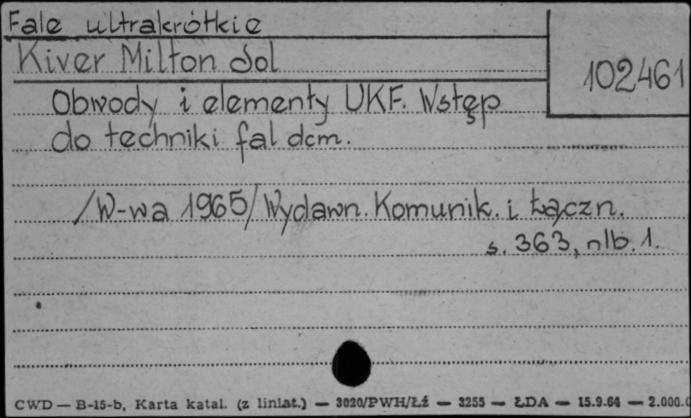 Fale ultrakrótkie
Kiver Milton Sol
102461
Obwody i elementy UKF. Wstęp
do techniki fal dcm.
/W-wa 1965/ Wydawn. Komunik. i Łączn.
s. 363, nlb. 1.
CWD — B-15-b, Karta katal. (z liniat.) — 3020/PWH/Łź — 3255 — ŁDA — 15.9.64 — 2.000.